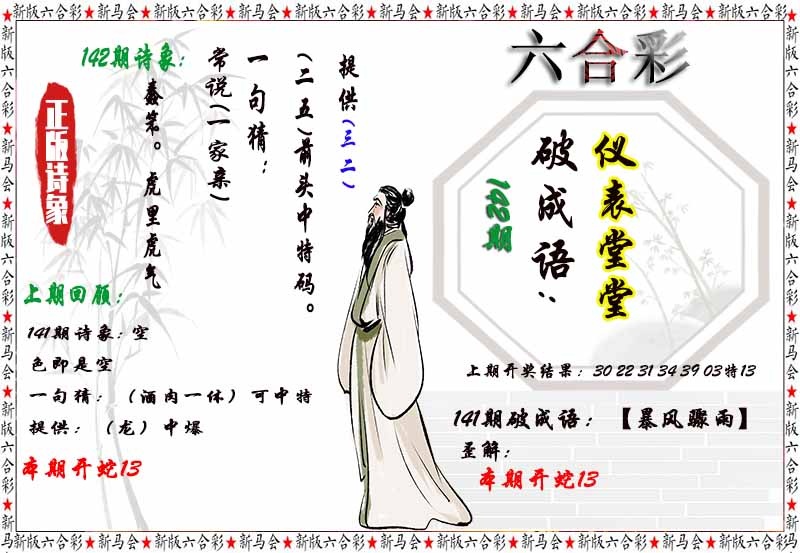 新版六合彩★新马会★新版六合彩★新马会★新版六合彩★新马会★新版六合彩★新马会★新版六合彩
六合彩
142期
破成语：
仪表堂堂
上期开奖结果：30 22 31 34 39 03特13
141期破成语：【暴风骤雨】
歪解：
本期开蛇13
提供(三二)
(二五)前头中特码。
一句猜：
常说(一家亲)
142期诗象：
蠢笨。虎里虎气
正版诗象
上期回顾：
141期诗象：空
色即是空
一句猜：（酒肉一休）可中特
提供：（龙）中爆
本期开蛇13
新版六合彩★新马会★新版六合彩★新马会★新版六合彩★新马会★新版六合彩★新马会★新版六合彩